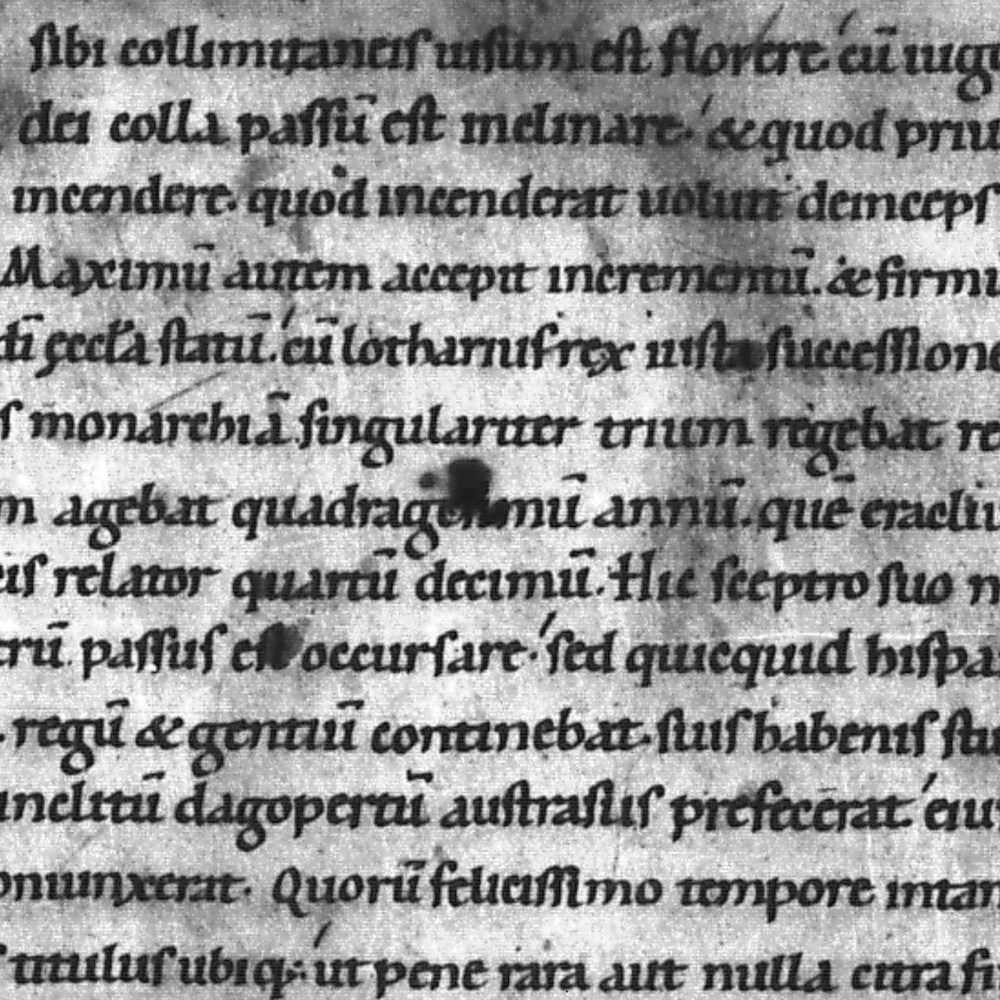 sibi collimitaneis uisum est florere cū iugu
dei colla passū est inclinare. & quod priu
incendere. quod incenderat uoluit deinceps
Maximū autem accepit incrementū. & firmū
di ęccła statū. cū lotharius rex iusta successione
s monarchiā singulariter trium regebat re
m agebat quadragesimū annū. quē eracliu
eis relator quartū decimū. Hic sceptro suo n
trū passus est occursare. sed quicquid hispa
regū & gentiū continebat. suis habenis stu
inclitū dagopertū austrasiis prefecerat eiu
oniunxerat. Quorū felicissimo tempore intan
s titulus ubiq; ut pene rara aut nulla citra fi